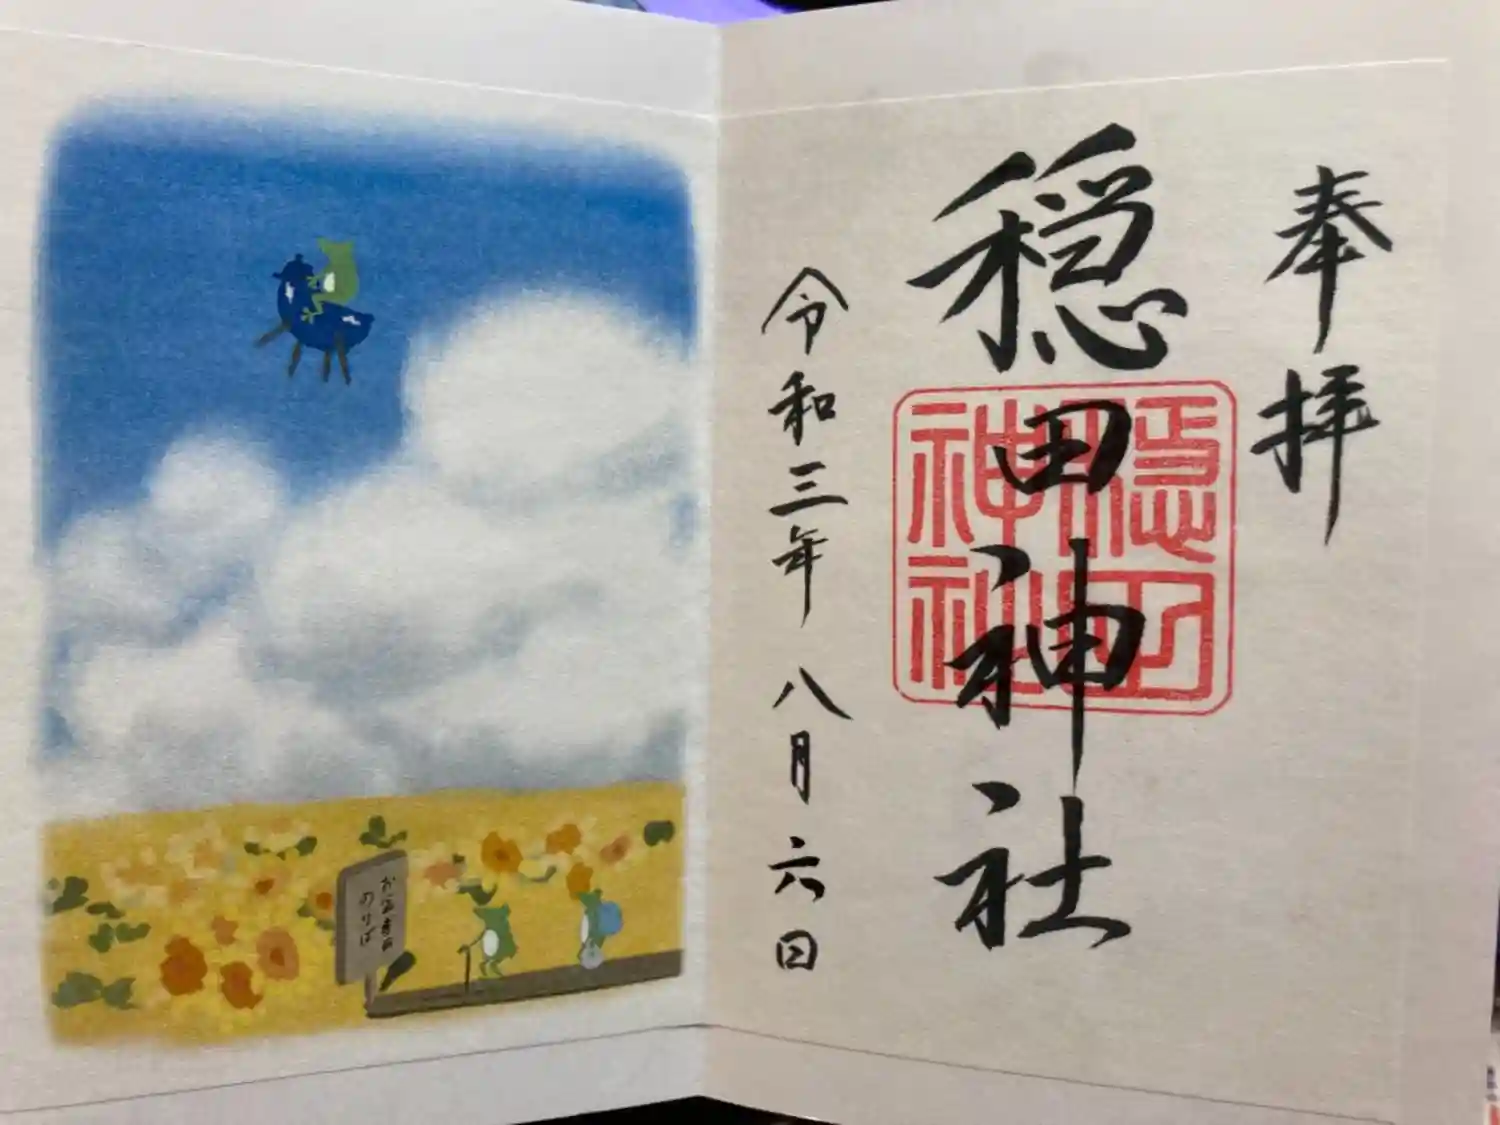 奉拝
穏田神社
令和三年 八月 六日
穏田
神社
のりば